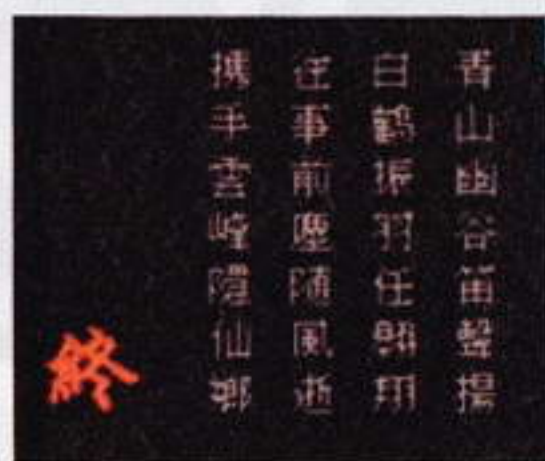 青山幽谷笛聲揚
白鶴振羽任翺翔
往事前塵隨風逝
攜手雲峰隱仙鄉
終